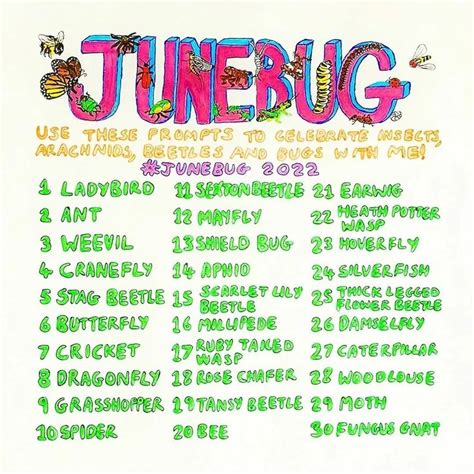 JUNEBUG
USE THESE PROMPTS TO CELEBRATE INSECTS,
ARACHNIDS, BEETLES AND BUGS WITH ME!
#JUNEBUG 2022
1 LADYBIRD
2 ANT
3 WEEVIL
4 CRANEFLY
5 STAG BEETLE
6 BUTTERFLY
7 CRICKET
8 DRAGONFLY
9 GRASSHOPPER
10 SPIDER
11 SEXTON BEETLE
12 MAYFLY
13 SHIELD BUG
14 APHID
15 SCARLET LILY
BEETLE
16 MILLIPEDE
17 RUBY TAILED
WASP
18 ROSE CHAFER
19 TANSY BEETLE
20 BEE
21 EARWIG
22 HEATH POTTER
WASP
23 HOVERFLY
24 SILVERFISH
25 THICK LEGGED
FLOWER BEETLE
26 DAMSELFLY
27 CATERPILLAR
28 WOODLOUSE
29 MOTH
30 FUNGUS GNAT